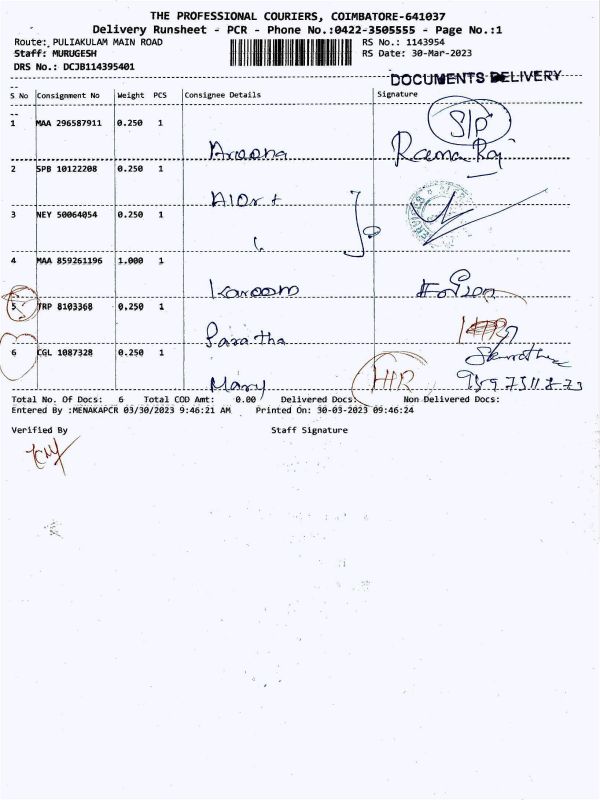 THE PROFESSIONAL COURIERS, COIMBATORE-641037
Delivery Runsheet - PCR - Phone No.:0422-3505555 - Page No.:1
Route: PULIAKULAM MAIN ROAD RS No.: 1143954
Staff: MURUGESH RS Date: 30-Mar-2023
DRS No.: DCJB114395401
DOCUMENTS DELIVERY
S No Consignment No Weight PCS Consignee Details Signature
1 MAA 296587911 0.250 1 S/P
Rama Raj
2 SPB 10122208 0.250 1
3 NEY 50064054 0.250 1
4 MAA 859261196 1.000 1
5 TRP 8103368 0.250 1
Saratha
6 CGL 1087328 0.250 1
Mary
Total No. Of Docs: 6 Total COD Amt: 0.00 Delivered Docs: Non Delivered Docs:
Entered By :MENAKAPCR 03/30/2023 9:46:21 AM Printed On: 30-03-2023 09:46:24
Verified By Staff Signature